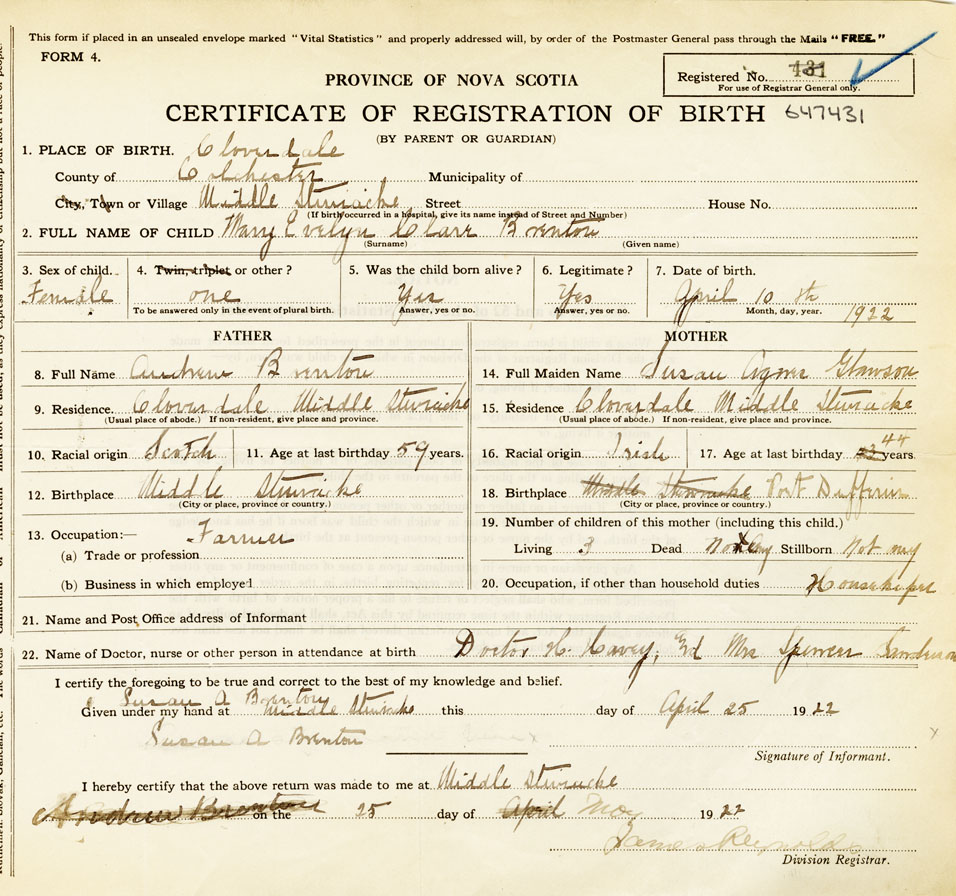 This form if placed in an unsealed envelope marked "Vital Statistics" and properly addressed will, by order of the Postmaster General pass through the Mails "FREE."
FORM 4.
Registered No. 431
For use of Registrar General only.
PROVINCE OF NOVA SCOTIA
CERTIFICATE OF REGISTRATION OF BIRTH 647431
(BY PARENT OR GUARDIAN)
1. PLACE OF BIRTH. Cloverdale
County of Colchester Municipality of
City, Town or Village Middle Stewiacke Street House No.
(If birth occurred in a hospital, give its name instead of Street and Number)
2. FULL NAME OF CHILD Mary Evelyn Clare Brenton
(Surname) (Given name)
3. Sex of child. 4. Twin, triplet or other? 5. Was the child born alive? 6. Legitimate? 7. Date of birth.
Female one Yes Yes April 10 th 1922
To be answered only in the event of plural birth. Answer, yes or no. Answer, yes or no. Month, day, year.
FATHER MOTHER
8. Full Name Andrew Brenton 14. Full Maiden Name Susan Agnes
9. Residence. Cloverdale Middle Stewiacke 15. Residence Cloverdale Middle Stewiacke
(Usual place of abode.) If non-resident, give place and province. (Usual place of abode.) If non-resident, give place and province.
10. Racial origin Scotch 11. Age at last birthday 59 years. 16. Racial origin Irish 17. Age at last birthday 44 years
12. Birthplace Middle Stewiacke 18. Birthplace Middle Stewiacke Port Dufferin
(City or place, province or country.) (City or place, province or country.)
13. Occupation:— Farmer 19. Number of children of this mother (including this child.)
(a) Trade or profession Living 3 Dead Not any Stillborn Not any
(b) Business in which employed 20. Occupation, if other than household duties Housekeeper
21. Name and Post Office address of Informant
22. Name of Doctor, nurse or other person in attendance at birth Doctor H. Mrs Spencer
I certify the foregoing to be true and correct to the best of my knowledge and belief.
Susan A Brenton
Given under my hand at Middle Stewiacke this day of April 25 1922
Susan A Brenton
Signature of Informant.
I hereby certify that the above return was made to me at Middle Stewiacke
Andrew Brenton on the 25 day of April May 1922
James Reynolds
Division Registrar.